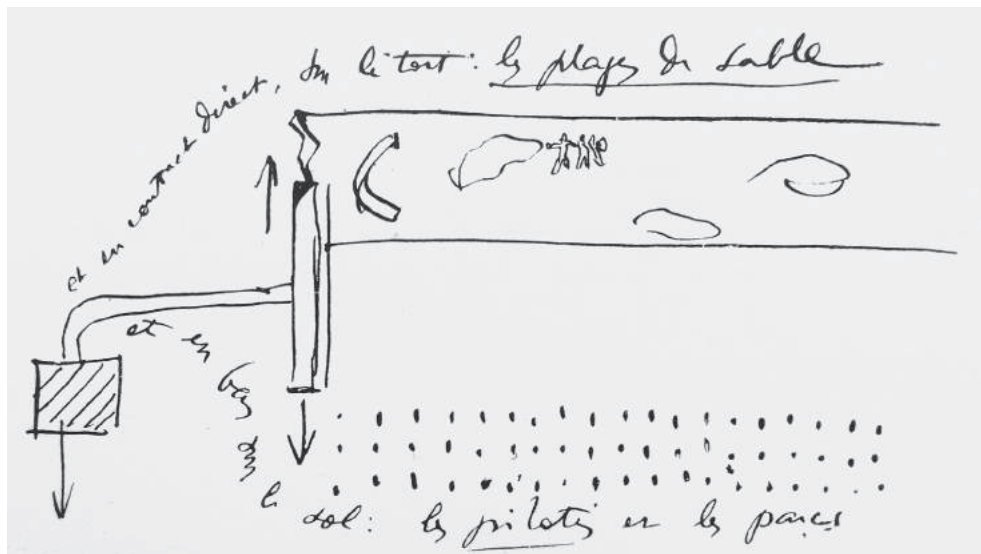 et en contact direct, sur le toit : les plages de sable
et en bas sur le sol : les pilotis et les parcs